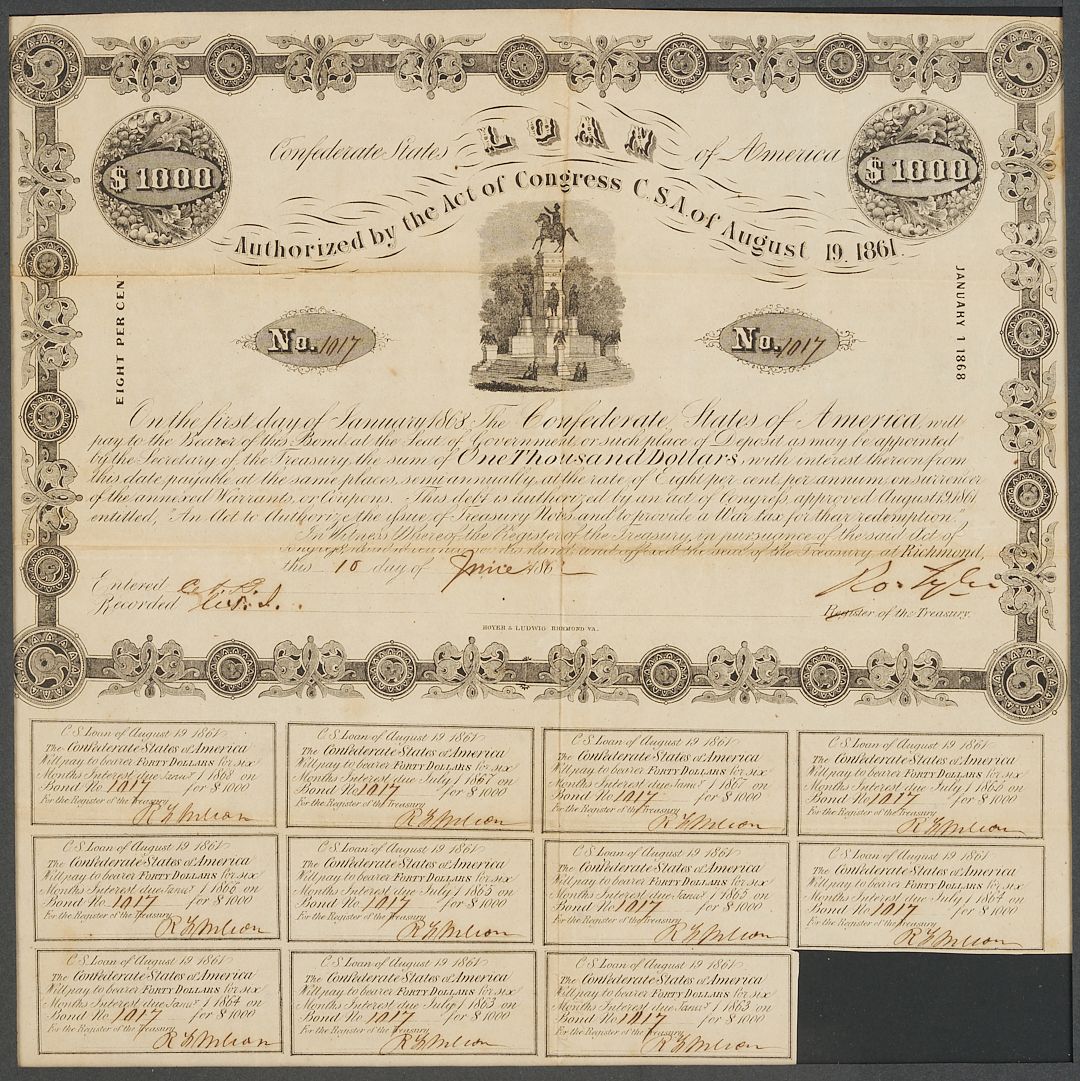 Confederate States LOAN of America
$1000
$1000
Authorized by the Act of Congress C.S.A. of August 19, 1861.
EIGHT PER CEN
JANUARY 1 1868
No. 1017
No. 1017
On the first day of January 1868 The Confederate States of America, will
pay to the Bearer of this Bond, at the Seat of Government, or such place of Deposit as may be appointed
by the Secretary of the Treasury, the sum of One Thousand Dollars, with interest thereon from
this date payable at the same places, semi annually, at the rate of Eight per cent, per annum, on surrender
of the annexed Warrants, or coupons. This debt is authorized by an act of Congress approved August 19, 1861
entitled, "An Act to Authorize the issue of Treasury Notes and to provide a War tax for their redemption."
In Witness Whereof the Register of the Treasury, in pursuance of the said Act of
Congress, hand and affixed the seal of the Treasury, at Richmond,
this 10 day of June 186
Entered
Recorded
Ro. Tyler
Register of the Treasury.
HOYER & LUDWIG RICHMOND VA.
C.S. Loan of August 19 1861
The Confederate States of America
Will pay to bearer FORTY DOLLARS for six
Months Interest due Jany. 1 1868 on
Bond No 1017 for $1000
For the Register of the Treasury
C.S. Loan of August 19 1861
The Confederate States of America
Will pay to bearer FORTY DOLLARS for six
Months Interest due July 1 1867 on
Bond No 1017 for $1000
For the Register of the Treasury
C.S. Loan of August 19 1861
The Confederate States of America
Will pay to bearer FORTY DOLLARS for six
Months Interest due Jany. 1 1867 on
Bond No 1017 for $1000
For the Register of the Treasury
C.S. Loan of August 19 1861
The Confederate States of America
Will pay to bearer FORTY DOLLARS for six
Months Interest due July 1 1866 on
Bond No 1017 for $1000
For the Register of the Treasury
C.S. Loan of August 19 1861
The Confederate States of America
Will pay to bearer FORTY DOLLARS for six
Months Interest due Jany. 1 1866 on
Bond No 1017 for $1000
For the Register of the Treasury
C.S. Loan of August 19 1861
The Confederate States of America
Will pay to bearer FORTY DOLLARS for six
Months Interest due July 1 1865 on
Bond No 1017 for $1000
For the Register of the Treasury
C.S. Loan of August 19 1861
The Confederate States of America
Will pay to bearer FORTY DOLLARS for six
Months Interest due Jany. 1 1865 on
Bond No 1017 for $1000
For the Register of the Treasury
C.S. Loan of August 19 1861
The Confederate States of America
Will pay to bearer FORTY DOLLARS for six
Months Interest due July 1 1864 on
Bond No 1017 for $1000
For the Register of the Treasury
C.S. Loan of August 19 1861
The Confederate States of America
Will pay to bearer FORTY DOLLARS for six
Months Interest due Jany. 1 1864 on
Bond No 1017 for $1000
For the Register of the Treasury
C.S. Loan of August 19 1861
The Confederate States of America
Will pay to bearer FORTY DOLLARS for six
Months Interest due July 1 1863 on
Bond No 1017 for $1000
For the Register of the Treasury
C.S. Loan of August 19 1861
The Confederate States of America
Will pay to bearer FORTY DOLLARS for six
Months Interest due Jany. 1 1863 on
Bond No 1017 for $1000
For the Register of the Treasury